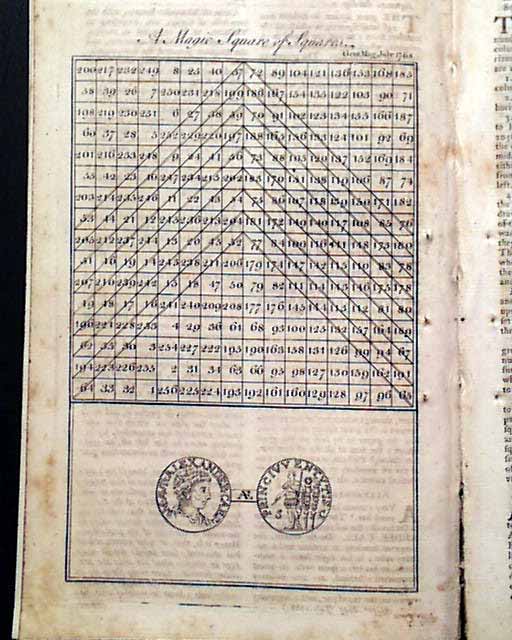 A Magic Square of Squares.
Gent. Mag. July 1768
200 217 232 249 8 25 40 57 72 89 104 121 136 153 168 185
58 39 26 7 250 231 218 199 186 167 154 135 122 103 90 71
198 219 230 251 6 27 38 59 70 91 102 123 134 155 166 187
60 37 28 5 252 229 220 197 188 165 156 133 124 101 92 69
201 216 233 248 9 24 41 56 73 88 105 120 137 152 169 184
55 42 23 10 247 234 215 202 183 170 151 138 119 106 87 74
203 214 235 246 11 22 43 54 75 86 107 118 139 150 171 182
53 44 21 12 245 236 213 204 181 172 149 140 117 108 85 76
205 212 237 244 13 20 45 52 77 84 109 116 141 148 173 180
51 46 19 14 243 238 211 206 179 174 147 142 115 110 83 78
207 210 239 242 15 18 47 50 79 82 111 114 143 146 175 178
49 48 17 16 241 240 209 208 177 176 145 144 113 112 81 80
196 221 228 253 4 29 36 61 68 93 100 125 132 157 164 189
62 35 30 3 254 227 222 195 190 163 158 131 126 99 94 67
194 223 226 255 2 31 34 63 66 95 98 127 130 159 162 191
64 33 32 1 256 225 224 193 192 161 160 129 128 97 96 65
Æ.